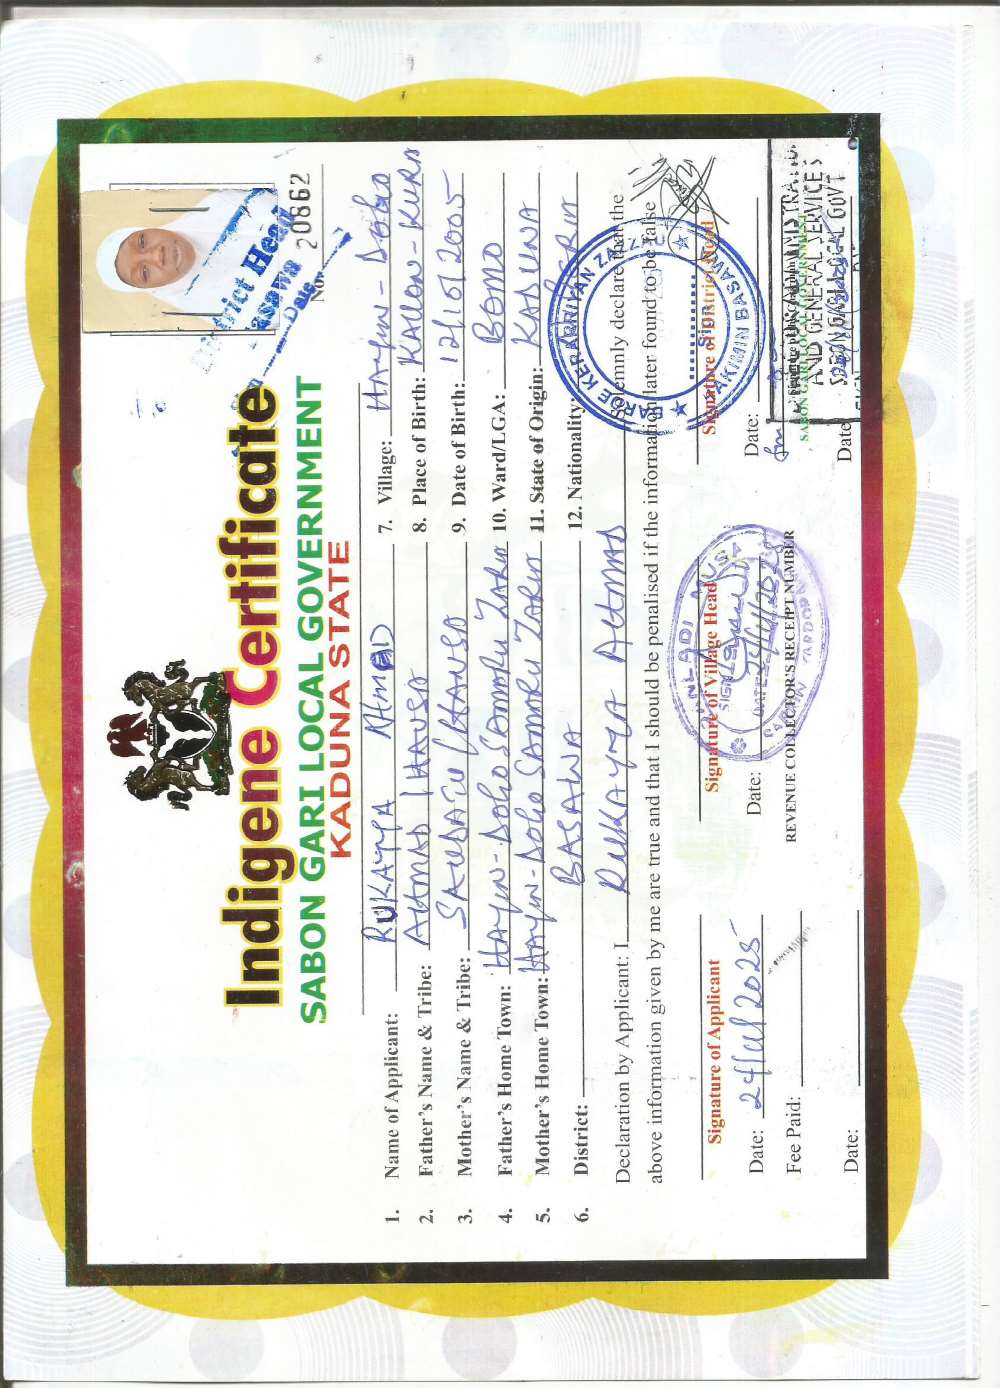 Indigene Certificate
SABON GARI LOCAL GOVERNMENT
KADUNA STATE
District Head
Basawa
Date
No 20662
1. Name of Applicant: RUKAYYA AHMAD
2. Father's Name & Tribe: AHMAD HAUSA
3. Mother's Name & Tribe: SAUDATU HAUSA
4. Father's Home Town: HAYIN-DOHO SAMARU ZARIA
5. Mother's Home Town: HAYIN-DOHO SAMARU ZARIA
6. District: BASAWA
7. Village: HAYIN-DOHO
8. Place of Birth: KALLON-KURA
9. Date of Birth: 12/01/2005
10. Ward/LGA: BOMO
11. State of Origin: KADUNA
12. Nationality:
Declaration by Applicant: I RUKAYYA AHMAD Solemnly declare that the
above information given by me are true and that I should be penalised if the information later found to be false
Signature of Applicant
Signature of Village Head
Signature of District Head
SARKIN
SIGN
DATE
BARDE KERARRIYAN ZAZZAU
HAKIMIN BASAWA
Date: 24/11/2025
Date:
Date:
Fee Paid:
REVENUE COLLECTOR'S RECEIPT NUMBER
SABON GARI LOCAL GOVERNMENT
ADMINISTRATION
AND GENERAL SERVICES
SABON GARI LOCAL GOVT
Date:
Date